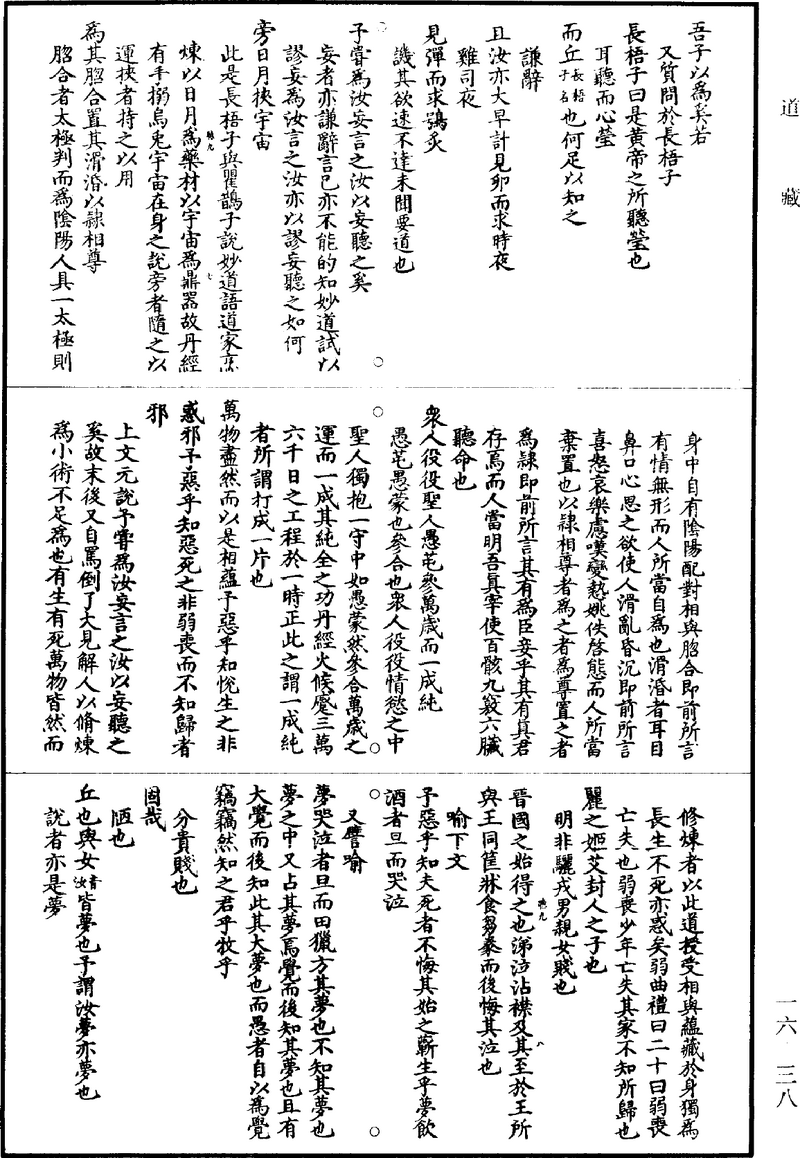 道藏
吾子以為奚若
又質問於長梧子
長梧子曰是黃帝之所聽瑩也
耳聽而心瑩
而丘長梧子名也何足以知之
謙辭
且汝亦大早計見卵而求時夜
雞司夜
見彈而求鴞炙
譏其欲速不達未聞要道也
予嘗為汝妄言之汝以妄聽之奚
妄者亦謙辭言己亦不能的知妙道試以
謬妄為汝言之汝亦以謬妄聽之如何
旁日月挾宇宙
此是長梧子與瞿鵲子說妙道語道家烹
煉以日月為藥材以宇宙為鼎器故丹經
有手搦烏兔宇宙在身之說旁者隨之以
運挾者持之以用
為其脗合置其滑湣以隸相尊
脗合者太極判而為陰陽人具一太極則
身中自有陰陽配對相與脗合即前所言
有情無形而人所當自為也滑湣者耳目
鼻口心思之欲使人滑亂昏沉即前所言
喜怒哀樂慮嘆變慹姚佚啓態而人所當
棄置也以隸相尊者為之者為尊置之者
為隸即前所言其有為臣妾乎其有真君
存焉而人當明吾真宰使百骸九竅六臟
聽命也
眾人役役聖人愚芚參萬歲而一成純
愚芚愚蒙也參合也眾人役役情慾之中
聖人獨抱一守中如愚蒙然參合萬歲之
運而一成其純全之功丹經火候蹙三萬
六千日之工程於一時正此之謂一成純
者所謂打成一片也
萬物盡然而以是相蘊予惡乎知悅生之非
惑邪予惡乎知惡死之非弱喪而不知歸者
邪
上文元說予嘗為汝妄言之汝以妄聽之
奚故末後又自罵倒了大見解人以脩煉
為小術不足為也有生有死萬物皆然而
修煉者以此道授受相與蘊藏於身獨為
長生不死亦惑矣弱曲禮曰二十曰弱喪
亡失也弱喪少年亡失其家不知所歸也
麗之姬艾封人之子也
明非驪戎男親女賤也
晉國之始得之也涕泣沾襟及其至於王所
與王同筐牀食芻豢而後悔其泣也
喻下文
予惡乎知夫死者不悔其始之蘄生乎夢飲
酒者旦而哭泣
又譬喻
夢哭泣者旦而田獵方其夢也不知其夢也
夢之中又占其夢焉覺而後知其夢也且有
大覺而後知此其大夢也而愚者自以為覺
竊竊然知之君乎牧乎
分貴賤也
固哉
陋也
丘也與女音汝皆夢也予謂汝夢亦夢也
說者亦是夢
一六 三八